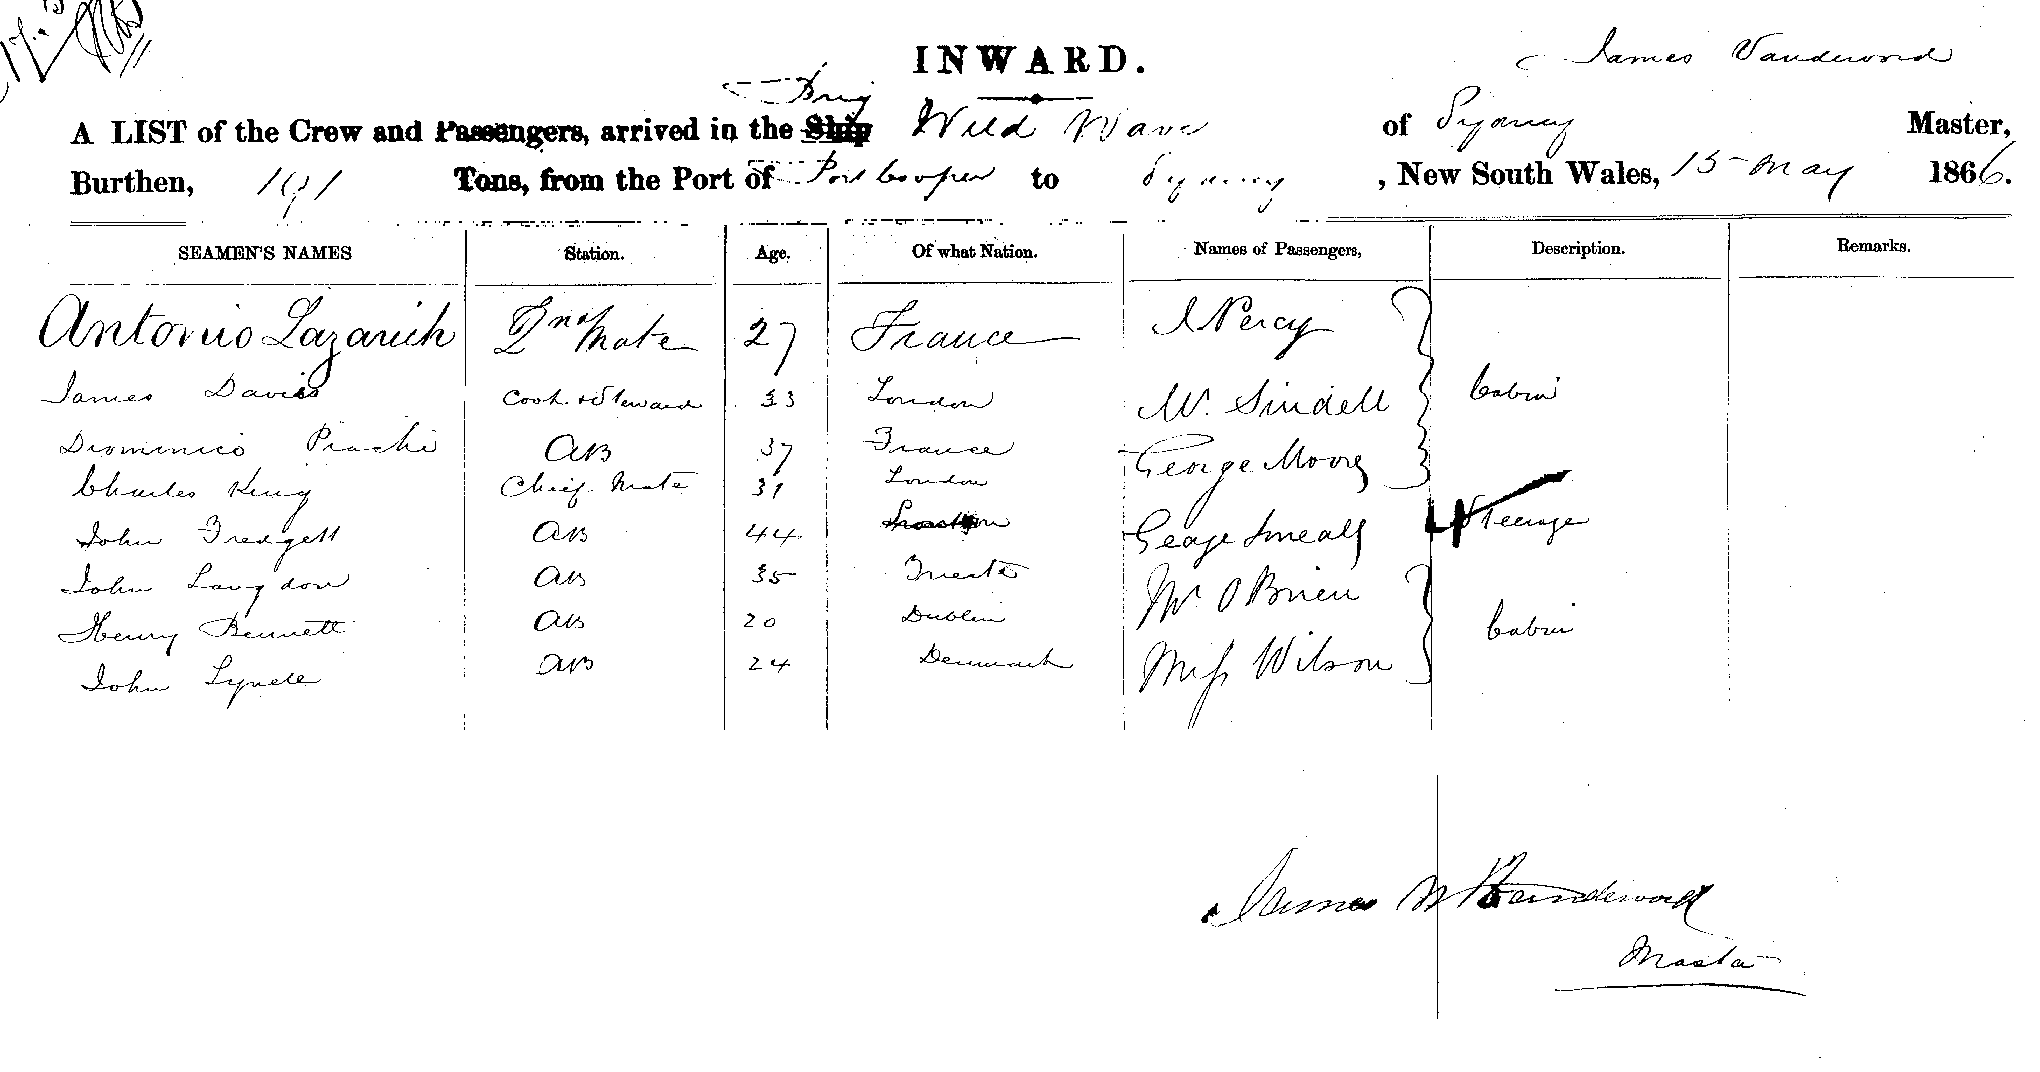 INWARD.
James Vanderword
Brig
A LIST of the Crew and Passengers, arrived in the Ship Wild Wave of Sydney Master,
Burthen, 191 Tons, from the Port of Port Cooper to Sydney, New South Wales, 15 May 1866.
SEAMEN'S NAMES Station. Age. Of what Nation. Names of Passengers, Description. Remarks.
Antonio Lazarich 2nd Mate 27 France J Percy
James Davis Cook & Steward 33 London Mr. Sindell Cabin
Diominico 37 AB France George Moore
Charles King Chief Mate 31 London
John Fredgett AB 44 George Smeall Steerage
John Langdon AB 35 Trieste Mr. O Brien
Henry Bennett AB 20 Dublin Cabin
John Lynde AB 24 Denmark Miss Wilson
James W Vanderword
Master